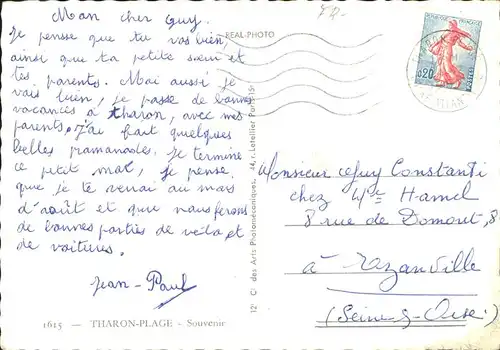 Mon cher Guy.
Je pensse que tu vas bien,
ainsi que ta petite sœur et
tes parents. Moi aussi je
vais bien, je passe de bonnes
vacances à tharon, avec mes
parents, j'ai fait quelques
belles pramanades. Je termine
ce petit mot, je pense
que je te verrai au mois
d'août et que nous ferons
de bonnes parties de vélo et
de voitures.
Jean-Paul
1615 — THARON-PLAGE - Souvenir
REAL-PHOTO
12 Cie des Arts Photomécaniques, 44, r. Letellier Paris-15e
0,20
POSTES
Monsieur Guy Constanti
chez Mr Hamel
8 rue de Domont, 8
à Ezanville
(Seine-&-Oise)